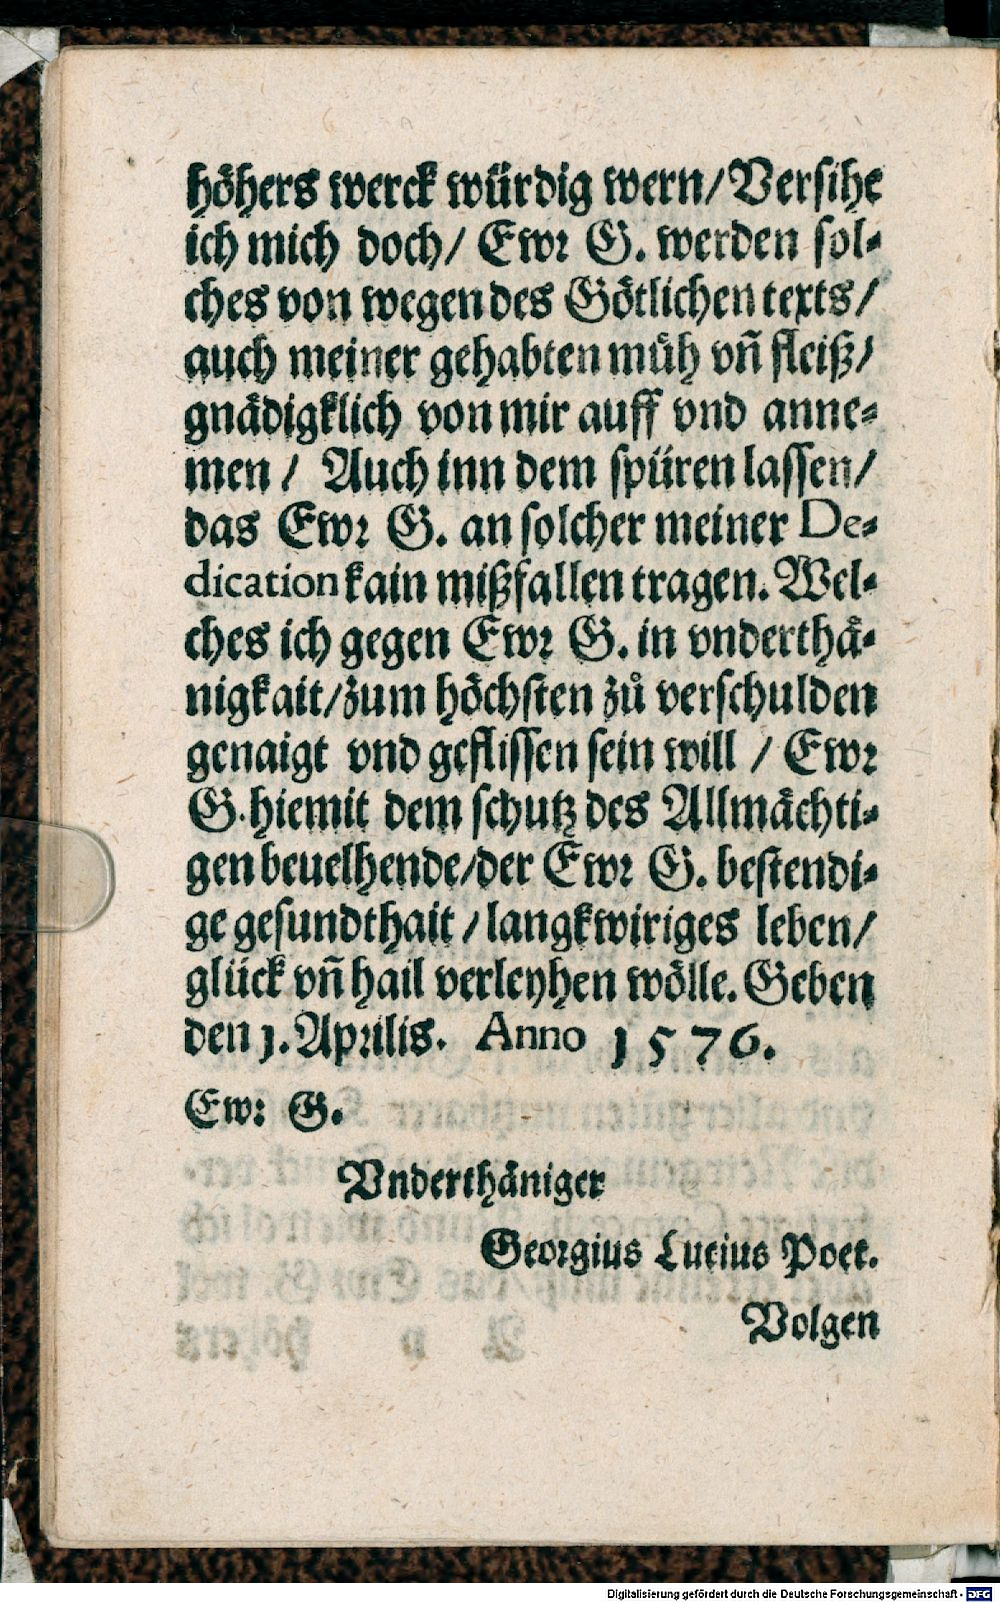 höhers werck würdig wern/ Versihe
ich mich doch/ Ewr G. werden sol⸗
ches von wegen des Götlichen texts/
auch meiner gehabten müh vñ fleiß/
gnädigklich von mir auff vnd anne⸗
men / Auch inn dem spüren lassen/
das Ewr G. an solcher meiner De⸗
dication kain mißfallen tragen. Wel⸗
ches ich gegen Ewr G. in vnderthä⸗
nigkait/ zum höchsten zů verschulden
genaigt vnd geflissen sein will / Ewr
G. hiemit dem schutz des Allmächti⸗
gen beuelhende/ der Ewr G. bestendi⸗
ge gesundthait / langkwiriges leben/
glück vñ hail verleyhen wölle. Geben
den 1. Aprilis. Anno 1576.
Ewr G.
Vnderthäniger
Georgius Lucius Poet.
Volgen
Digitalisierung gefördert durch die Deutsche Forschungsgemeinschaft - DFG